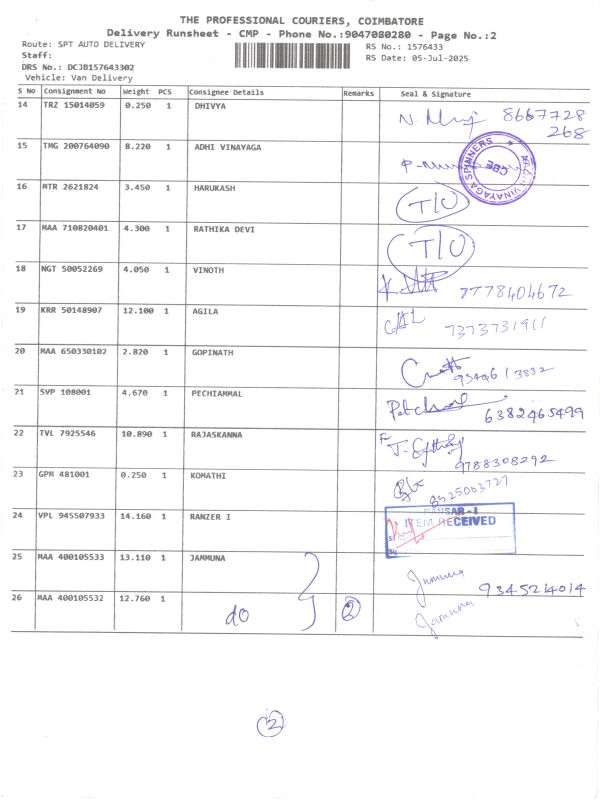 THE PROFESSIONAL COURIERS, COIMBATORE
Delivery Runsheet - CMP - Phone No.:9047080280 - Page No.:2
Route: SPT AUTO DELIVERY RS No.: 1576433
Staff: RS Date: 05-Jul-2025
DRS No.: DCJB157643302
Vehicle: Van Delivery
S No Consignment No Weight PCS Consignee Details Remarks Seal & Signature
14 TRZ 15014059 0.250 1 DHIVYA 8667728
268
15 TMG 200764090 8.220 1 ADHI VINAYAGA VINAYAGA SPINNERS CBE
16 MTR 2621824 3.450 1 HARUKASH T/O
17 MAA 710820401 4.300 1 RATHIKA DEVI T/O
18 NGT 50052269 4.050 1 VINOTH 8778404672
19 KRR 50148907 12.100 1 AGILA 7373731911
20 MAA 650330102 2.820 1 GOPINATH 9344613832
21 SVP 108001 4.670 1 PECHIAMMAL 6382465499
22 TVL 7925546 10.890 1 RAJASKANNA 9788308292
23 GPM 481001 0.250 1 KOMATHI
24 VPL 945507933 14.160 1 RANZER I RANSAR-I
ITEM RECEIVED
25 MAA 400105533 13.110 1 JAMMUNA Jamuna 9345214014
26 MAA 400105532 12.760 1 do 2 Jamuna
2